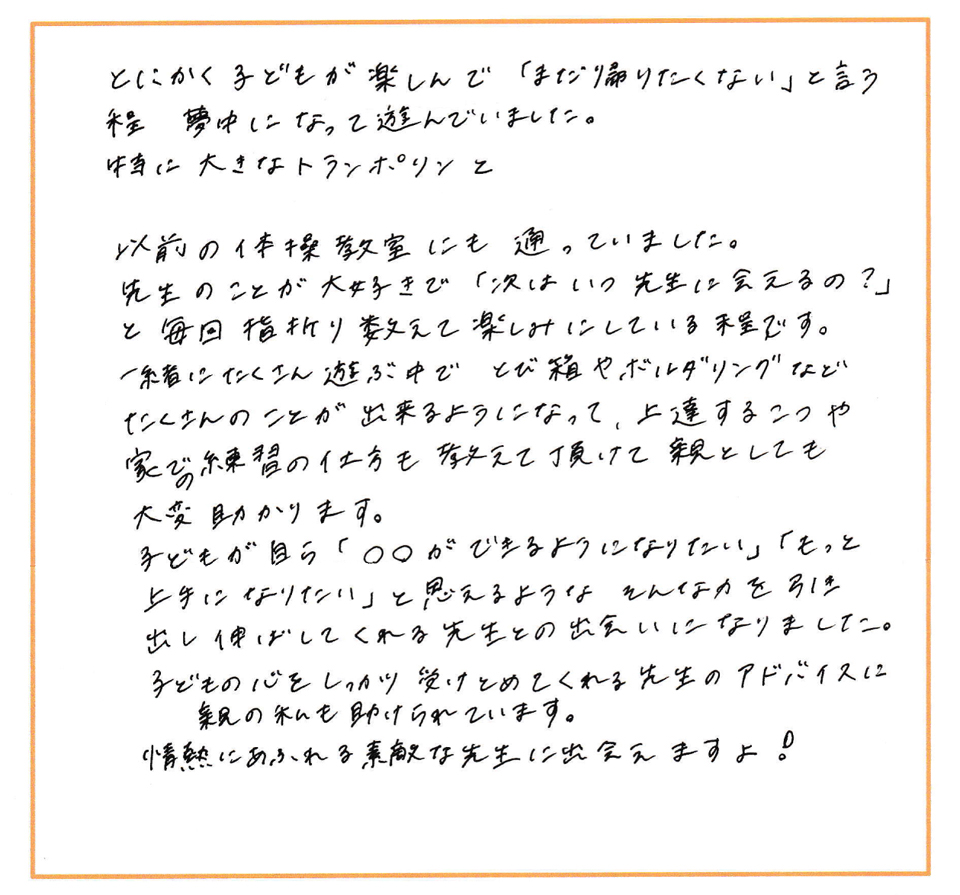 とにかく 子どもが 楽しんで 「まだ帰りたくない」と言う
程 夢中になって遊んでいました。
特に 大きなトランポリンと
以前の体操教室にも 通っていました。
先生のことが 大好きで「次は いつ 先生に会えるの?」
と 毎回 指折り 数えて 楽しみにしている 程です。
一緒にたくさん 遊ぶ中で とび箱や ボルダリングなど
たくさんのことが 出来るようになって、上達するこつや
家での練習の仕方も 教えて頂けて 親としても
大変 助かります。
子どもが自ら「〇〇ができるようになりたい」「もっと
上手に なりたい」と思えるような そんな力を 引き
出し 伸ばしてくれる 先生との出会いになりました。
子どもの心を しっかり 受けとめてくれる先生のアドバイスに
親の私も助けられています。
情熱にあふれる素敵な先生に出会えますよ!